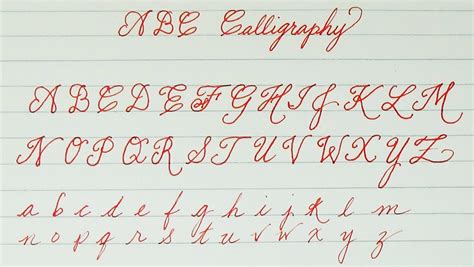 ABC Calligraphy
A B C D E F G H I J K L M
N O P Q R S T U V W X Y Z
a b c d e f g h i j k l m
n o p q r s t u v w x y z